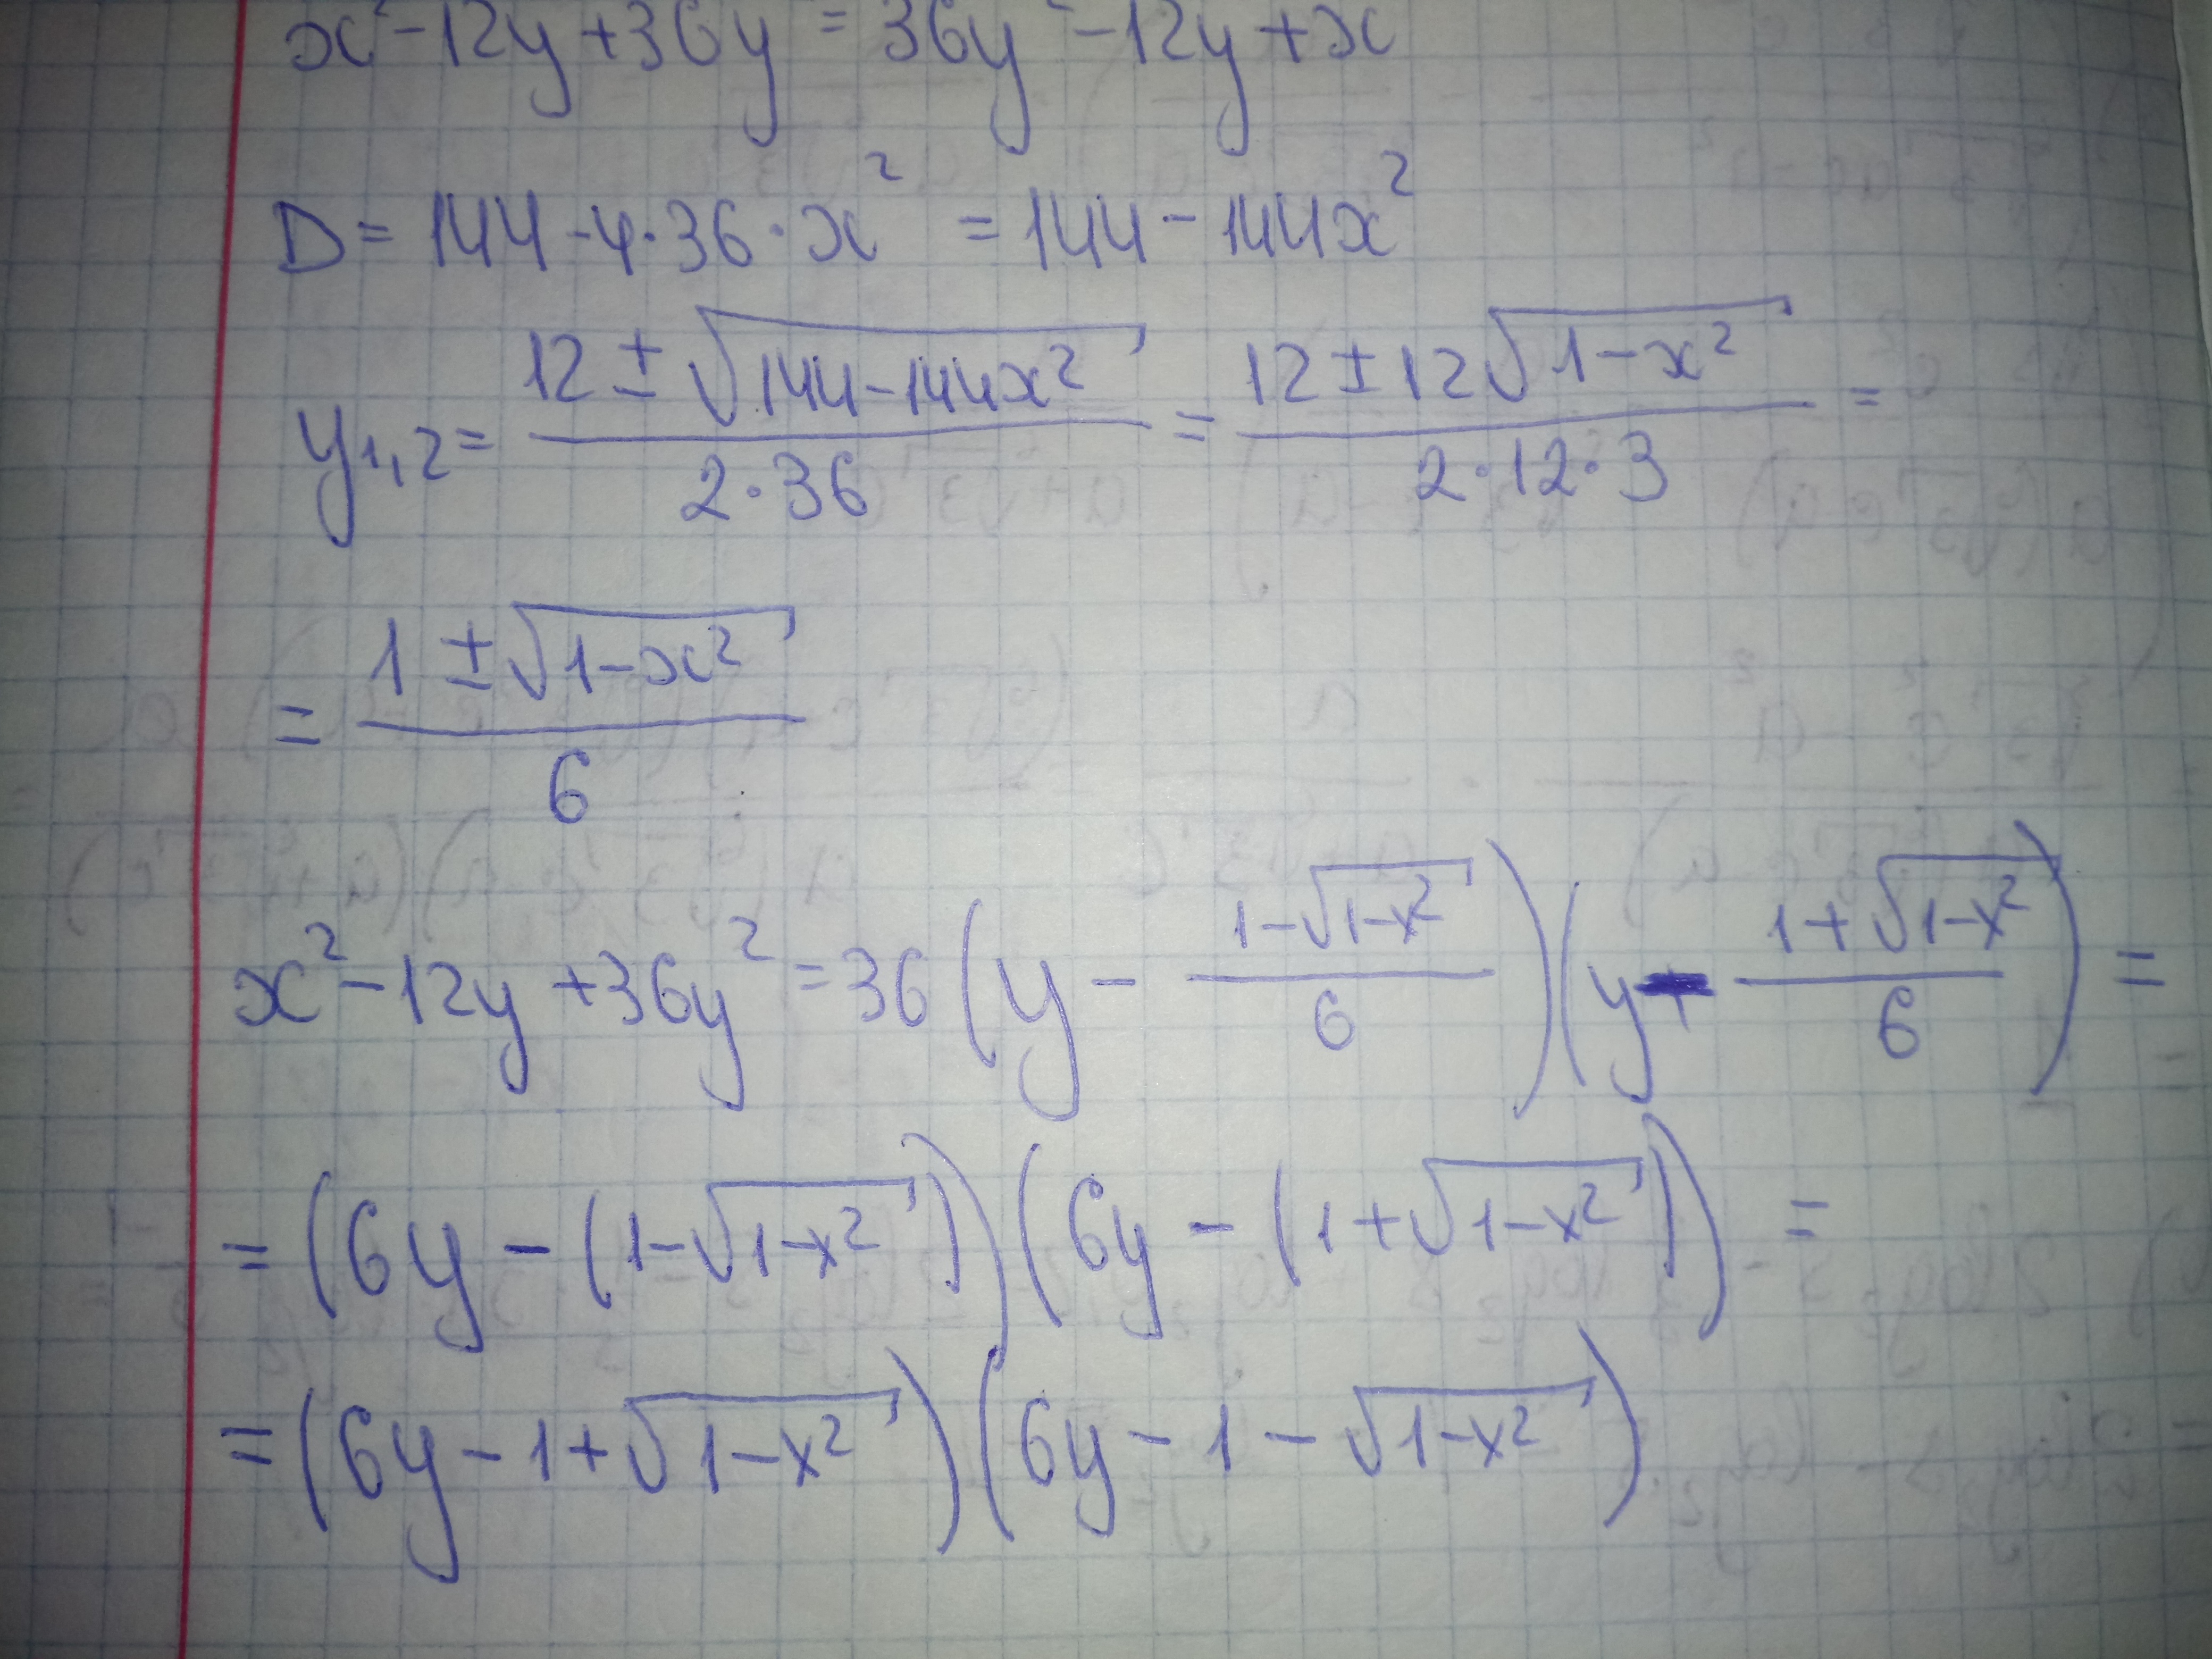 x² - 12y + 36y = 36y² - 12y + x
D = 144 - 4·36·x² = 144 - 144x²
y₁,₂ = (12 ± √(144 - 144x²))/(2·36) = (12 ± 12√(1 - x²))/(2·12·3) =
= (1 ± √(1 - x²))/6
x² - 12y + 36y² = 36(y - (1 - √(1 - x²))/6)(y - (1 + √(1 - x²))/6) =
= (6y - (1 - √(1 - x²)))(6y - (1 + √(1 - x²))) =
= (6y - 1 + √(1 - x²))(6y - 1 - √(1 - x²))